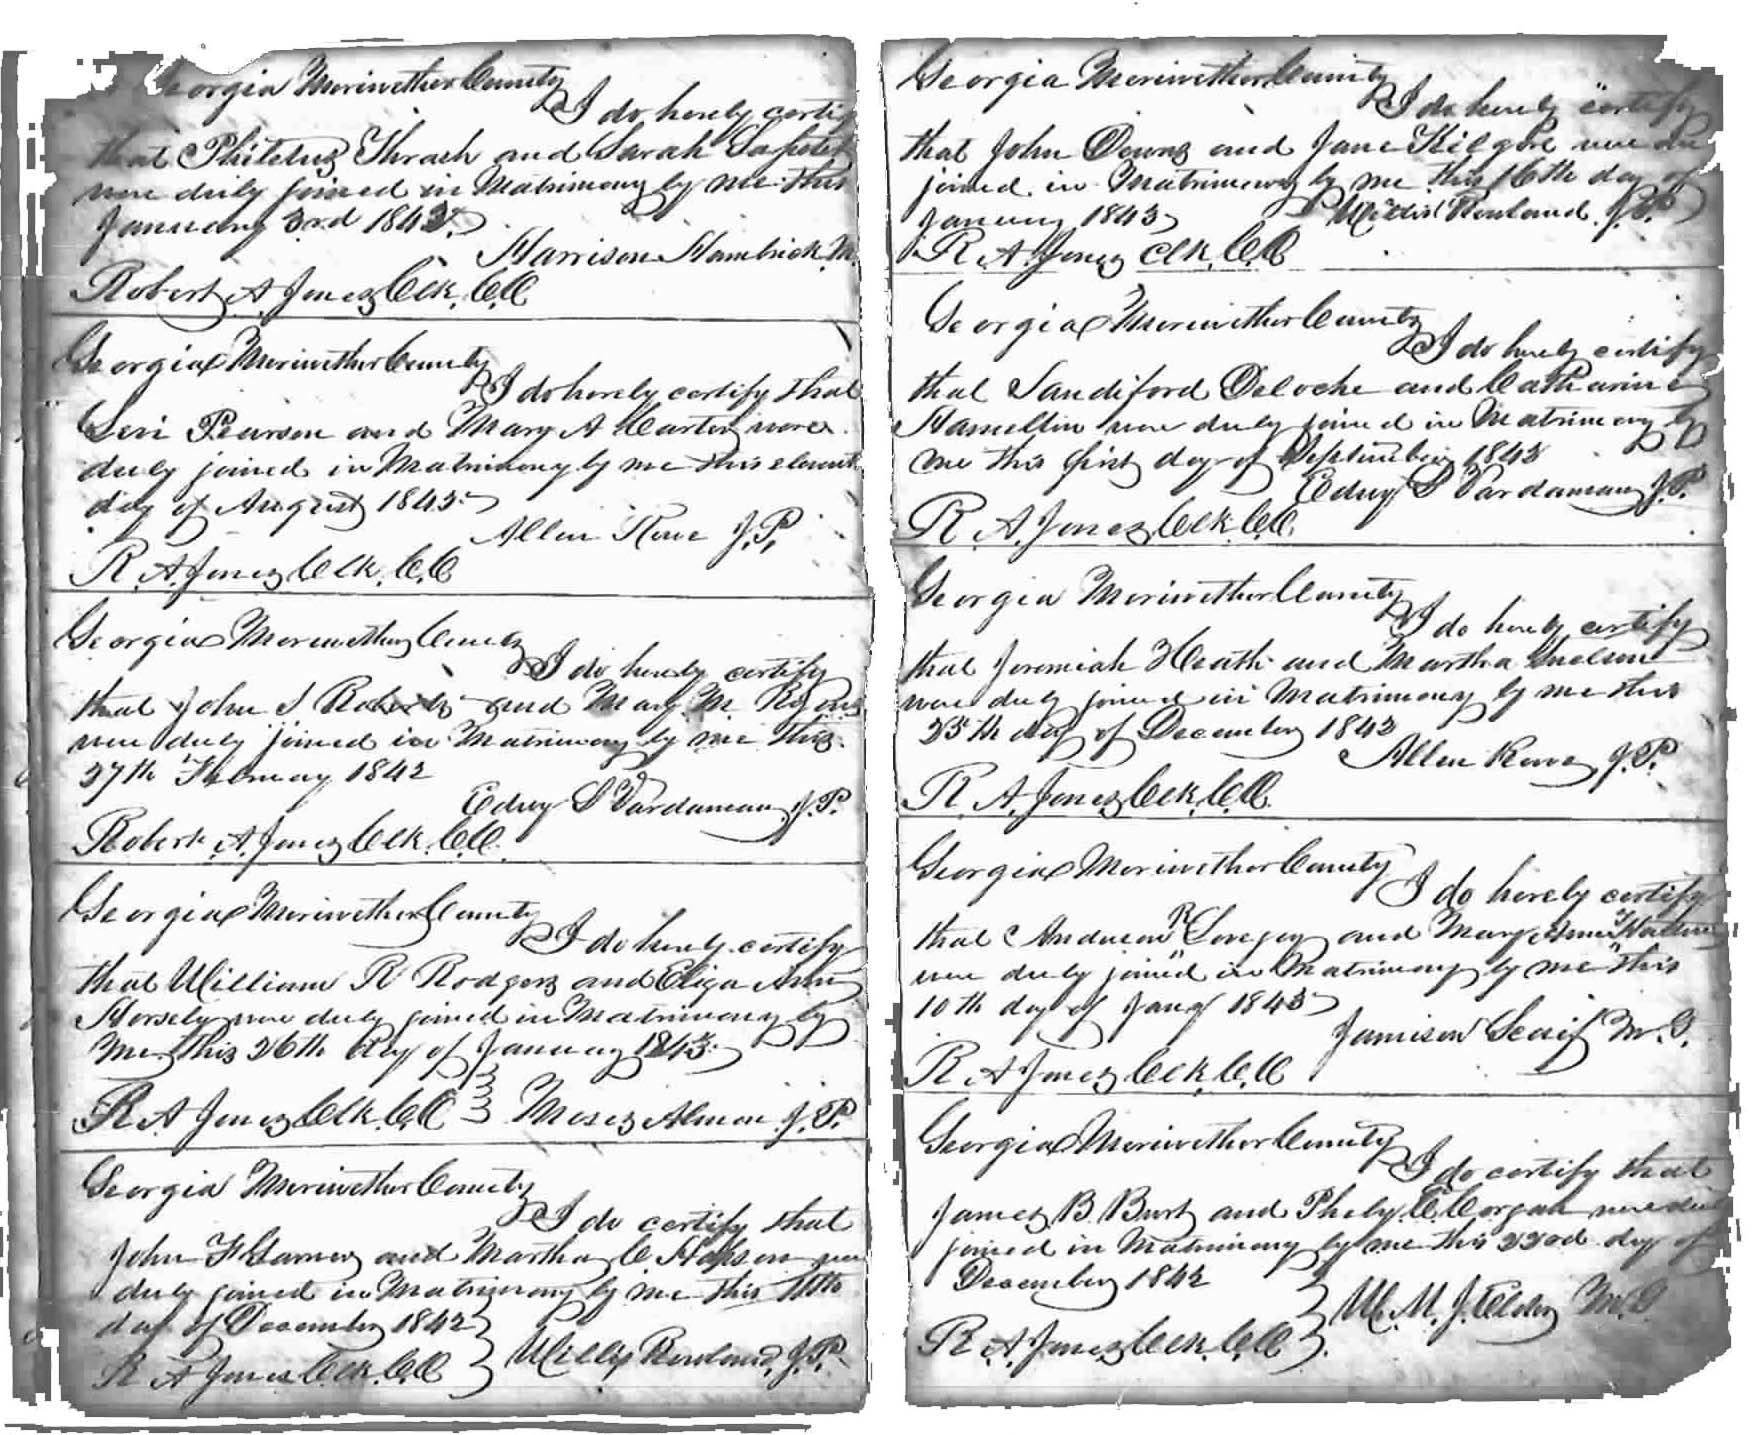 Georgia Meriwether County
I do hereby certify
that Philelus Thrash and Sarah
were duly joined in Matrimony by me this
January 3rd 1843
Harrison Hambrick M.
Robert A. Jones Clk. C.C.
Georgia Meriwether County
I do hereby certify that
Levi Pearson and Mary A Carter were
duly joined in Matrimony by me this eleventh
day of August 1843
Allen Rowe J.P.
R. A. Jones Clk. C.C.
Georgia Meriwether County
I do hereby certify
that John S Roberts and Mary M.
were duly joined in Matrimony by me this
27th February 1842
Edwy S Vardaman J.P.
Robert A. Jones Clk. C.C.
Georgia Meriwether County
I do hereby certify
that William R Rodgers and Eliza Ann
Horsely were duly joined in Matrimony by
me this 26th day of January 1843
R. A Jones Clk. C.C. Moses Almon J.P.
Georgia Meriwether County
I do certify that
John F and Martha C. Hopson were
duly joined in Matrimony by me this 11th
day of December 1842
R A Jones Clk. C.C. Willis Rowland, J.P.
Georgia Meriwether County
I do hereby certify
that John Downs and Jane Kilgore were du
joined in Matrimony by me this 16th day of
January 1843
Willis Rowland J.P.
R. A. Jones Clk. C.C.
Georgia Meriwether County
I do hereby certify
that Sandiford Deloche and Catharine
Hamelton were duly joined in Matrimony by
me this first day of September 1843
Edwy S Vardaman J.P.
R. A. Jones Clk. C.C.
Georgia Meriwether County
I do hereby certify
that Jeremiah Heath and Martha
were duly joined in Matrimony by me this
25th day of December 1842
Allen Rowe J.P.
R. A. Jones Clk. C.C.
Georgia Meriwether County
I do hereby certify
that Anderson R Lovejoy and Mary Ann
were duly joined in Matrimony by me this
10th day of Jany 1843
Jamison M.G.
R. A Jones Clk. C.C.
Georgia Meriwether County
I do certify that
James B. Burt and Pheby C. were duly
joined in Matrimony by me this 22nd day of
December 1842
W. M. J. Elder M.G
R A. Jones Clk C.C.